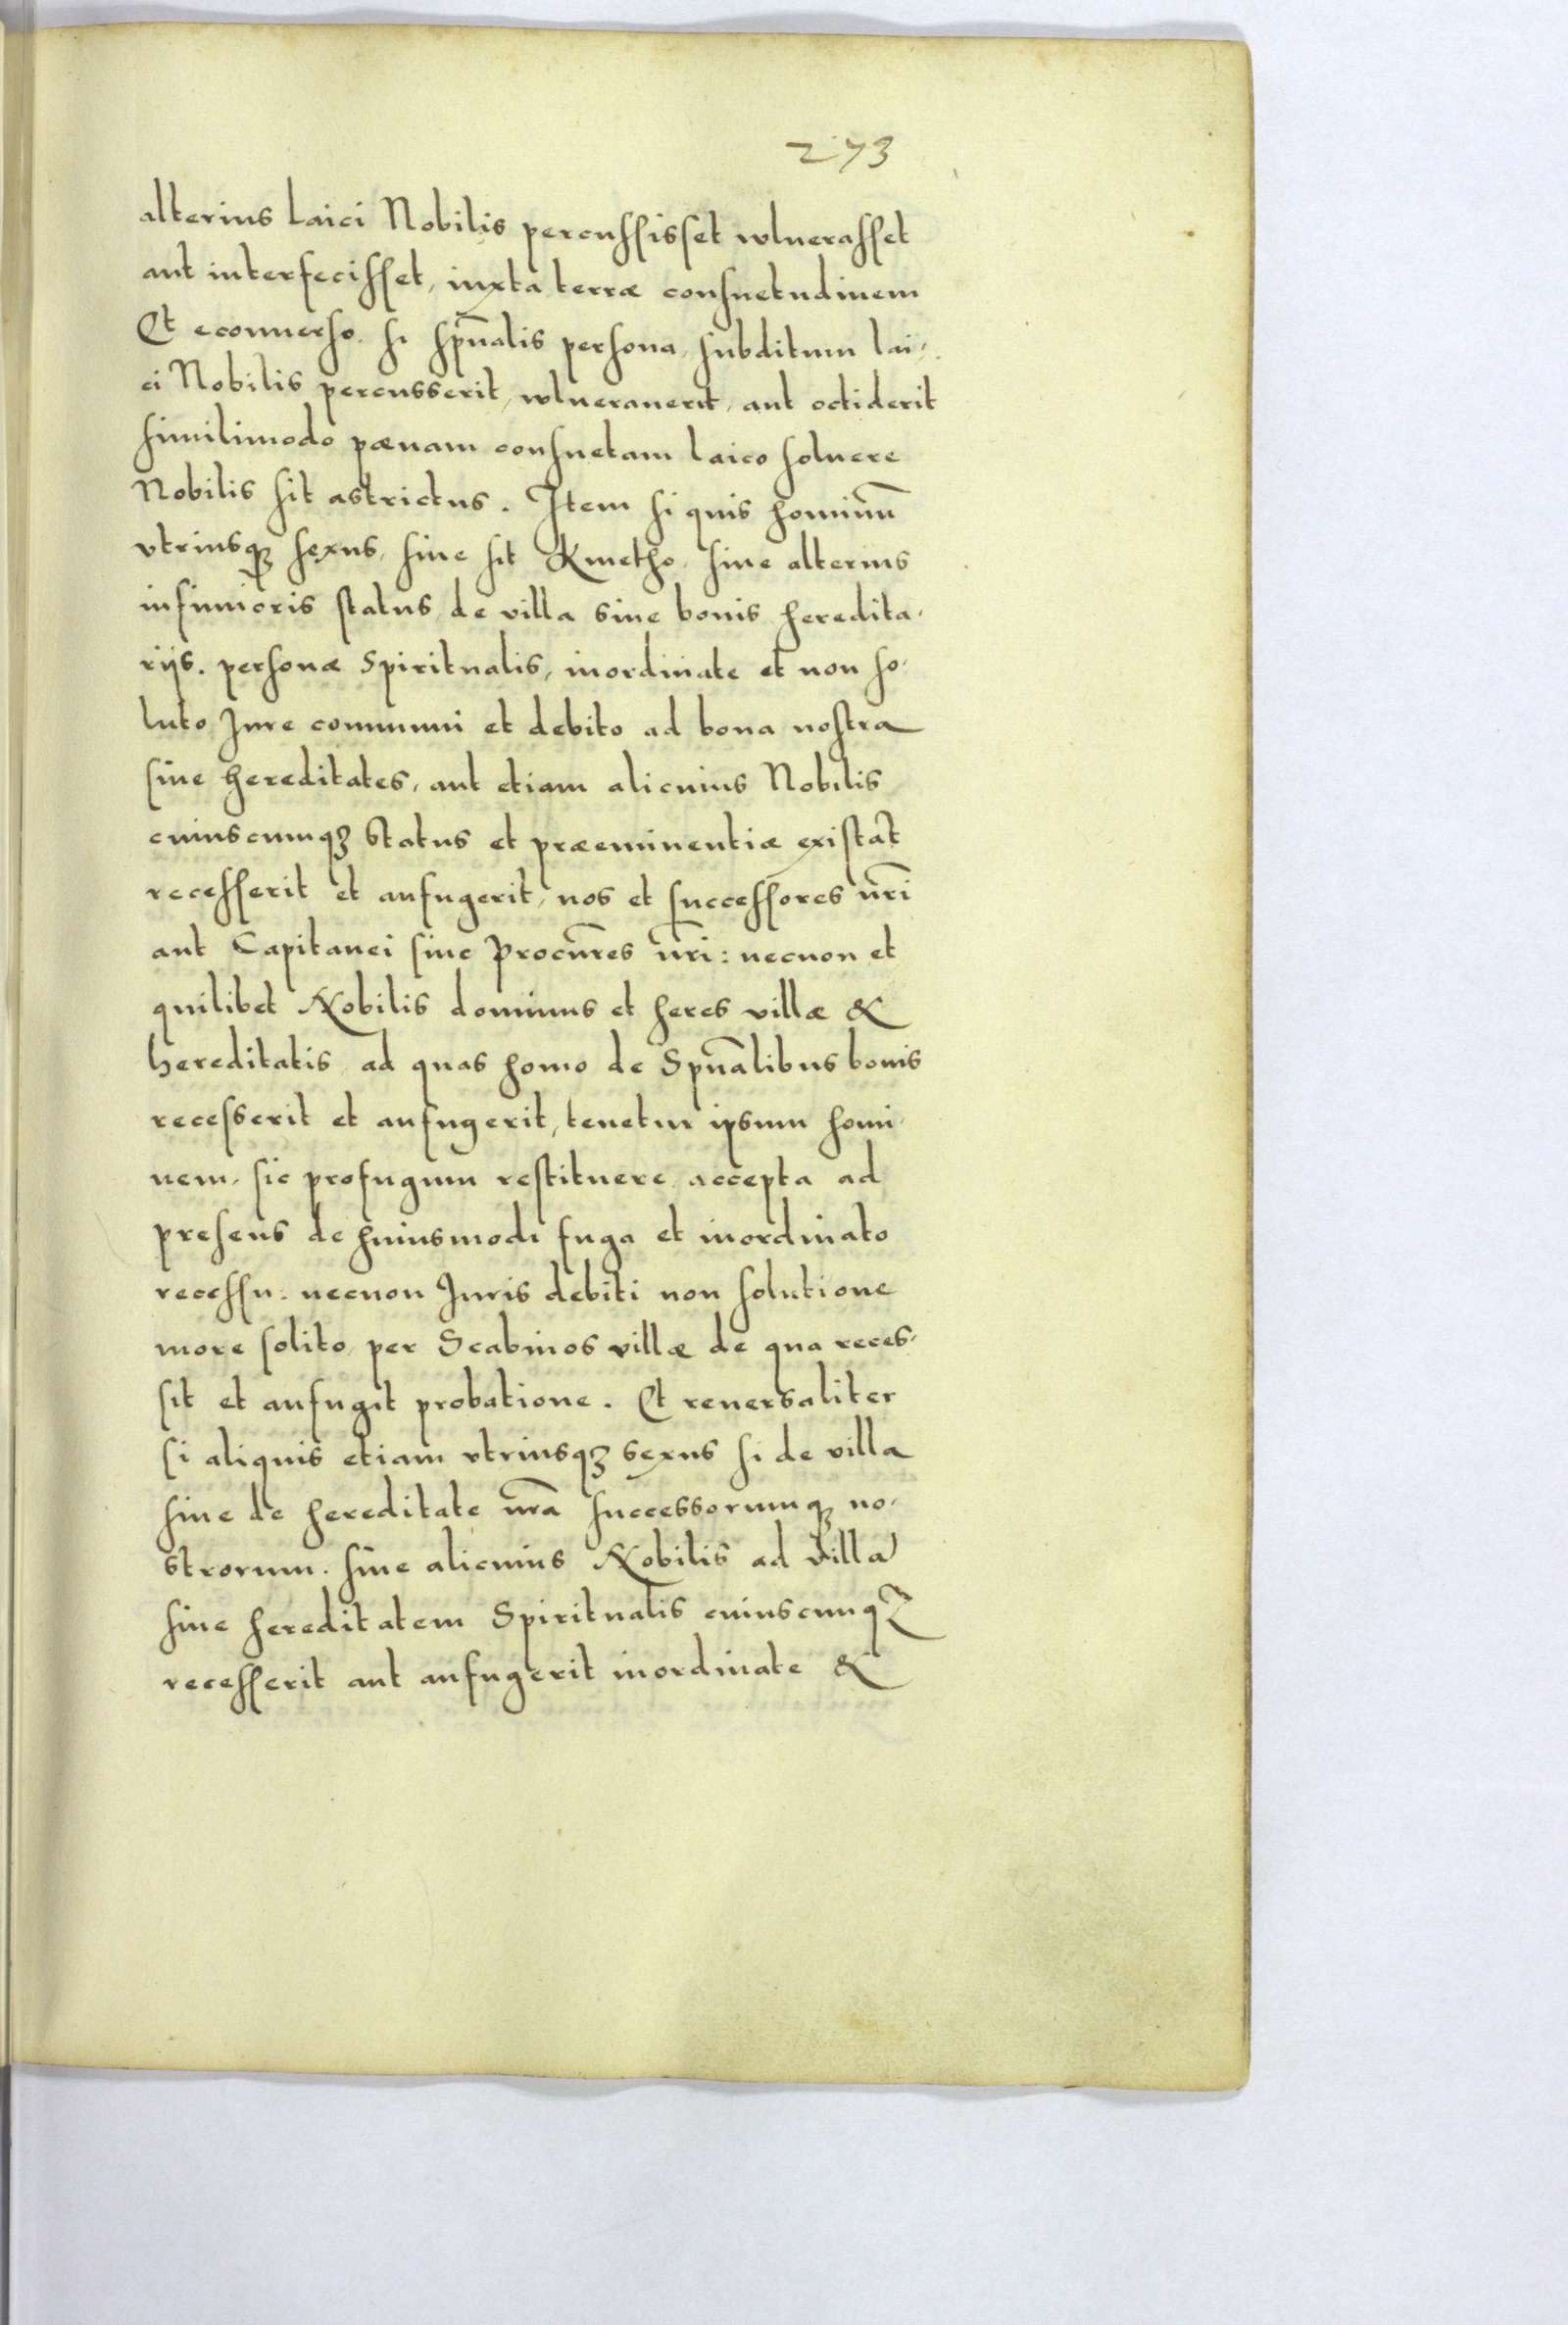 273
alterius laici Nobilis percussisset wlnerasset
aut interfecisset, iuxta terræ consuetudinem
Et econuerso. si sp̄ualis persona, subditum lai-
ci Nobilis percusserit, wlnerauerit, aut occiderit
similimodo pænam consuetam laico soluere
Nobilis sit astrictus. Item si quis hominū
vtriusqꝫ sexus, siue sit Kmetho, siue alterius
infimioris status de villa siue bonis heredita-
rijs. personæ Spiritualis, inordinate et non so-
luto Jure communi et debito ad bona nostra
siue hereditates, aut etiam alicuius Nobilis
cuiuscumqꝫ status et præeminentiæ existat
recesserit et aufugerit, nos et successores nr̄i
aut Capitanei siue Procur̄es nr̄i: necnon et
quilibet Nobilis dominus et heres villæ &
hereditatis ad quas homo de Spūalibus bonis
recesserit et aufugerit, tenetur ipsum homi-
nem, sic profugum restituere accepta ad
presens de huiusmodi fuga et inordinato
recessu: necnon Juris debiti non solutione
more solito per Scabinos villæ de qua reces-
sit et aufugit probatione. Et reuersaliter
si aliquis etiam vtriusqꝫ sexus si de villa
siue de hereditate nr̄a successorumqꝫ no-
strorum. siue alicuius Nobilis ad villā
siue hereditatem Spiritualis cuiuscunqꝫ
recesserit aut aufugerit inordinate &